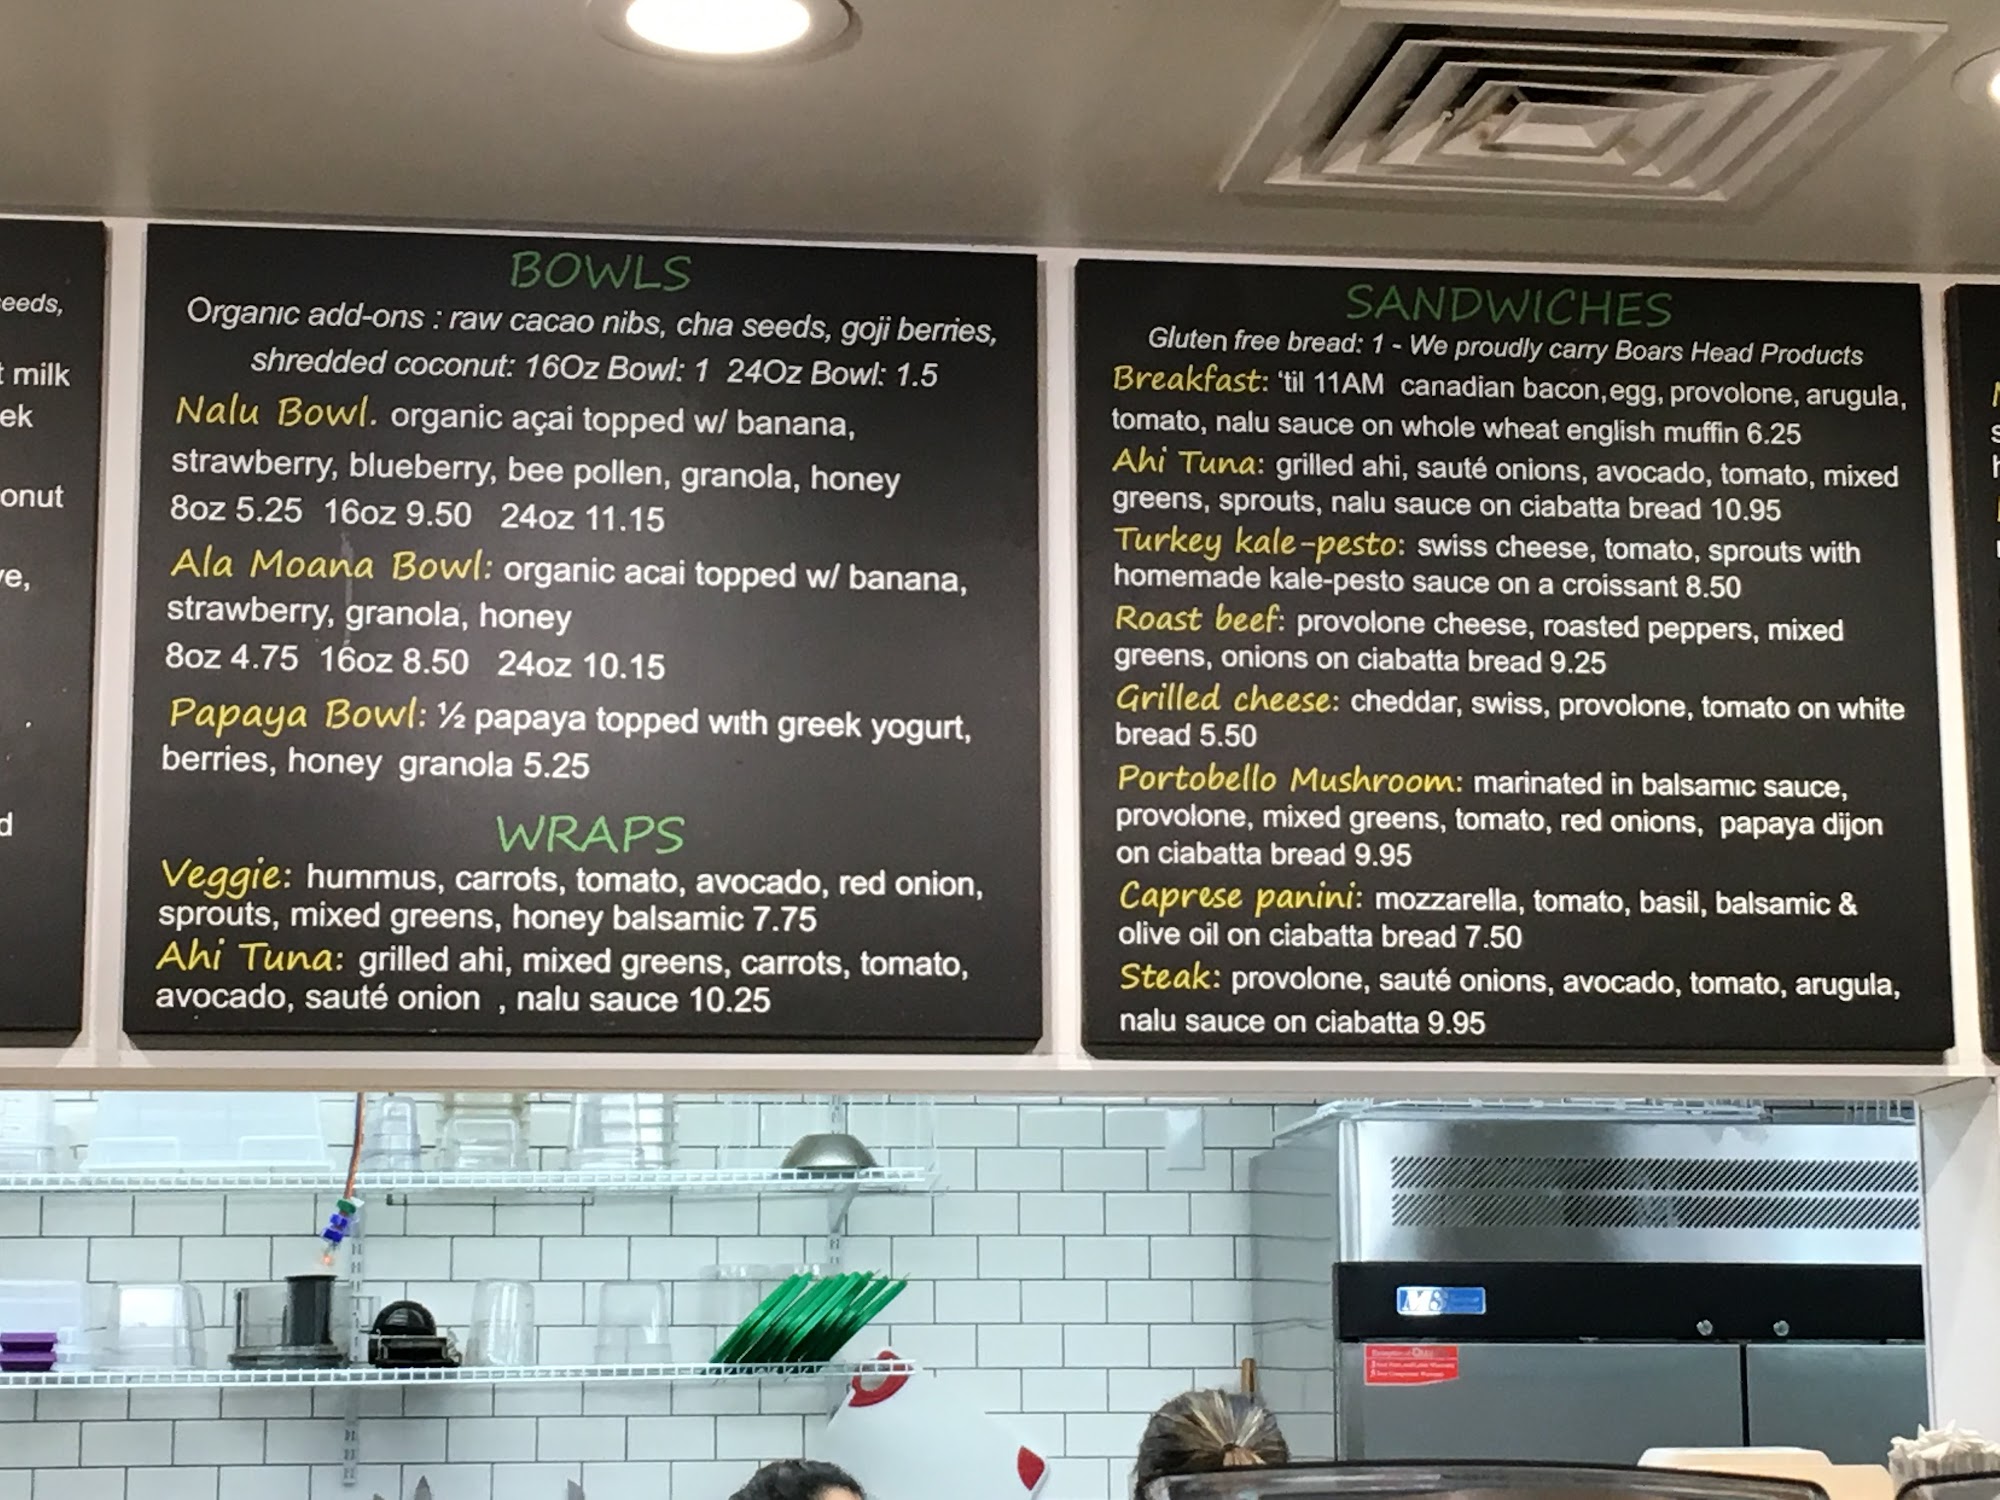 eeds,
milk
ek
onut
e,
d
BOWLS
Organic add-ons : raw cacao nibs, chia seeds, goji berries,
shredded coconut: 16Oz Bowl: 1 24Oz Bowl: 1.5
Nalu Bowl. organic açai topped w/ banana,
strawberry, blueberry, bee pollen, granola, honey
8oz 5.25 16oz 9.50 24oz 11.15
Ala Moana Bowl: organic acai topped w/ banana,
strawberry, granola, honey
8oz 4.75 16oz 8.50 24oz 10.15
Papaya Bowl: ½ papaya topped with greek yogurt,
berries, honey granola 5.25
WRAPS
Veggie: hummus, carrots, tomato, avocado, red onion,
sprouts, mixed greens, honey balsamic 7.75
Ahi Tuna: grilled ahi, mixed greens, carrots, tomato,
avocado, sauté onion , nalu sauce 10.25
SANDWICHES
Gluten free bread: 1 - We proudly carry Boars Head Products
Breakfast: ‘til 11AM canadian bacon,egg, provolone, arugula,
tomato, nalu sauce on whole wheat english muffin 6.25
Ahi Tuna: grilled ahi, sauté onions, avocado, tomato, mixed
greens, sprouts, nalu sauce on ciabatta bread 10.95
Turkey kale-pesto: swiss cheese, tomato, sprouts with
homemade kale-pesto sauce on a croissant 8.50
Roast beef: provolone cheese, roasted peppers, mixed
greens, onions on ciabatta bread 9.25
Grilled cheese: cheddar, swiss, provolone, tomato on white
bread 5.50
Portobello Mushroom: marinated in balsamic sauce,
provolone, mixed greens, tomato, red onions, papaya dijon
on ciabatta bread 9.95
Caprese panini: mozzarella, tomato, basil, balsamic &
olive oil on ciabatta bread 7.50
Steak: provolone, sauté onions, avocado, tomato, arugula,
nalu sauce on ciabatta 9.95